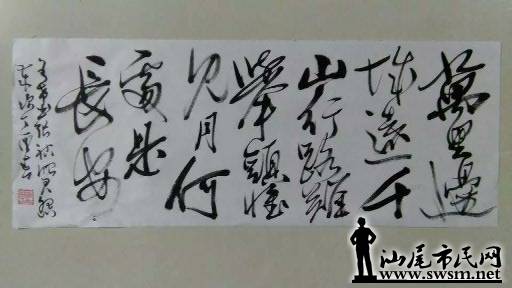 萬里邊
城遠千
山行路難
舉頭惟
見月何
處是
長安
汕尾市民网
www.swsm.net